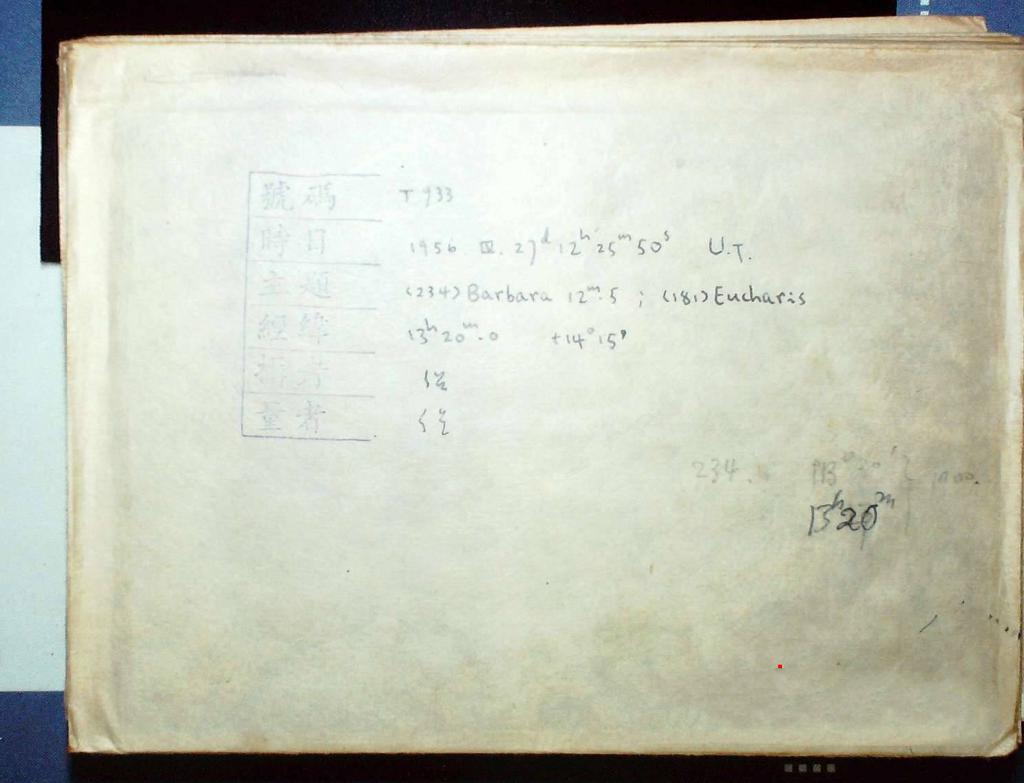 號碼 T 933
時日 1956 III. 27ᵈ 12ʰ 25ᵐ 50ˢ U.T.
主題 (234) Barbara 12ᵐ.5 ; (181) Eucharis
經緯 13ʰ 20ᵐ.0 +14° 15'
攝者
量者
234.
13ʰ20ᵐ